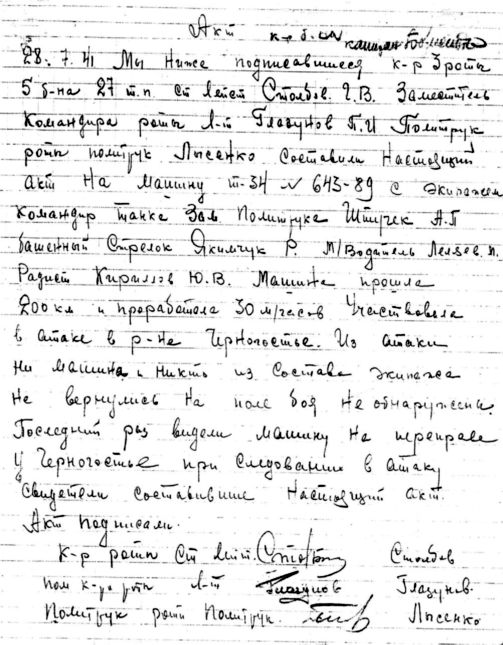 Акт к-р б-на капитан
28.7.41 Мы Ниже подписавшиеся к-р 3 роты
5 б-на 27 т.п. Ст Лейт Столбов. Г.В. Заместитель
Командира роты Л-т Глазунов П.И Политрук
роты политрук Лысенко Составили Настоящий
акт На Машину т-34 № 643-89 С экипажем
Командир танка Зам. Политрука Штучек А.П
башенный Стрелок Якимчук Р. М/Водитель
Радист Кириллов Ю.В. Машина прошла
200 км и проработала 30 м/часов Участвовала
в атаке в р-не Черногостье. Из атаки
Ни Машина и Никто из Состава экипажа
Не вернулись На поле боя Не обнаружены
Последний раз видели Машину На переправе
У Черногостье при Следовании в атаку
Свидетели Составившие Настоящий акт.
Акт Подписали.
К-р роты Ст Лейт. Столбов
пом к-ра роты Л-т Глазунов Глазунов
Политрук роты Политрук. Лысенко